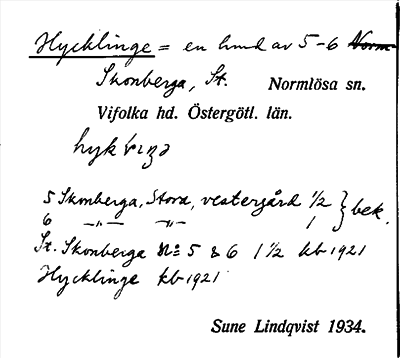 Hycklinge = en lund av 5-6 Norm-
Skonberga, St. Normlösa sn.
Vifolka hd. Östergötl. län.
5 Skonberga, Stora, västergård 1/2 } bek.
6 -"- -"- 1
St. Skonberga No 5 & 6 1 1/2 kb 1921
Hycklinge kb 1921
Sune Lindqvist 1934.